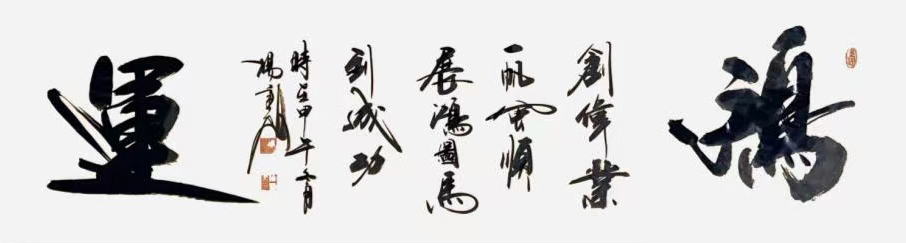 鴻
創偉業
一帆風順
展鴻圖馬
到成功
時甲午月
楊
運